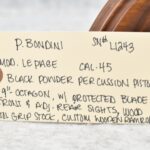 P. BONDINI SN# L1243
MOD. LE PAGE CAL. 45
BLACK POWDER PERCUSSION PISTOL
9" OCTAGON, W/ PROTECTED BLADE
FRONT & ADJ. REAR SIGHTS, WOOD
GRIP STOCK, CUSTOM WOODEN RAMROD